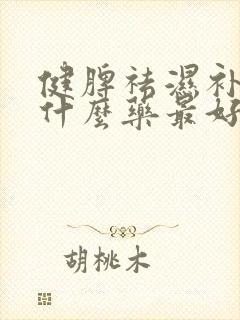 健脾祛濕补
什麼藥最好
胡桃木